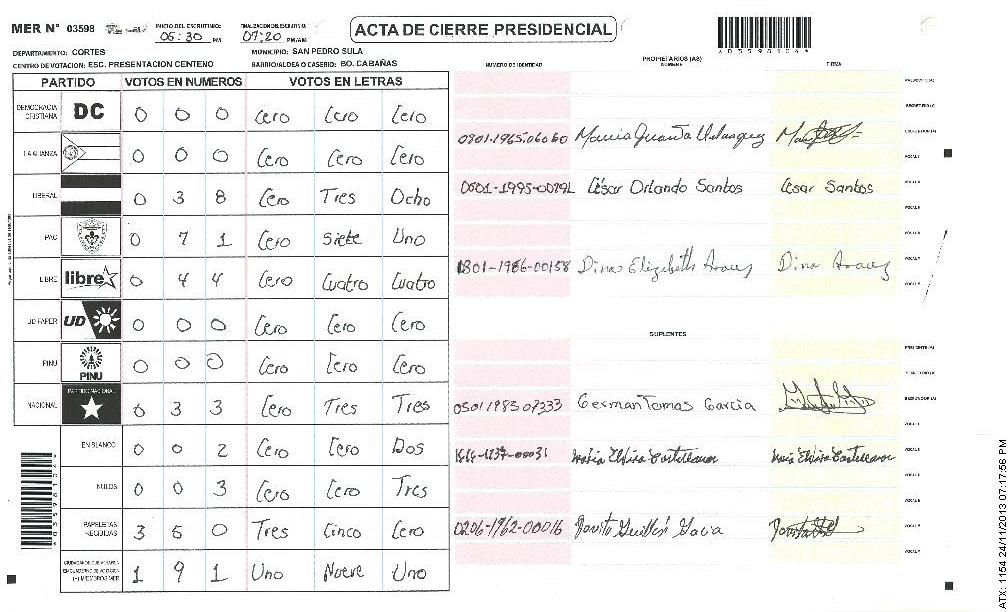 MER Nº 03598 INICIO DEL ESCRUTINIO: 05:30 PM FINALIZACION DEL ESCRUTINIO: 07:20 PM/AM ACTA DE CIERRE PRESIDENCIAL
DEPARTAMENTO: CORTES MUNICIPIO: SAN PEDRO SULA
CENTRO DE VOTACION: ESC. PRESENTACION CENTENO BARRIO/ALDEA O CASERIO: BO. CABAÑAS
PARTIDO VOTOS EN NUMEROS VOTOS EN LETRAS
DEMOCRACIA CRISTIANA DC 0 0 0 Cero Cero Cero
LA ALIANZA 0 0 0 Cero Cero Cero
LIBERAL 0 3 8 Cero Tres Ocho
PAC 0 7 1 Cero Siete Uno
LIBRE libre 0 4 4 Cero Cuatro Cuatro
UD FAPER UD 0 0 0 Cero Cero Cero
PINU PINU 0 0 0 Cero Cero Cero
NACIONAL PARTIDO NACIONAL 0 3 3 Cero Tres Tres
EN BLANCO 0 0 2 Cero Cero Dos
NULOS 0 0 3 Cero Cero Tres
PAPELETAS RECIBIDAS 3 5 0 Tres Cinco Cero
1 9 1 Uno Nueve Uno
PROPIETARIOS (AS)
NUMERO DE IDENTIDAD NOMBRE FIRMA
0801-1965-06060
0501-1995-0079 César Orlando Santos Cesar Santos
1801-1986-00158 Dina Elizabeth
SUPLENTES
0501198507333 German Tomas Garcia
Maria Elvira Castellanos Maria Elvira Castellanos
0206-1962-00016
ATX: 1154 24/11/2013 07:17:56 PM